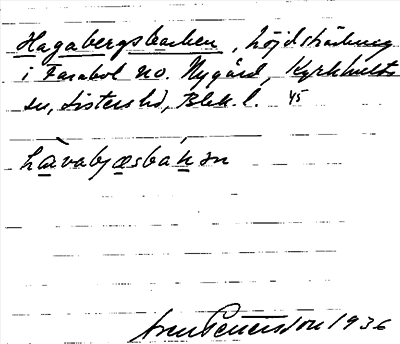 Hagabergsbacken, höjdsträckning
i Farabol no. Nygård, Kyrkhults
sn, Listers hd, Blek. l. 45
hàvabjæsbáksn
Sven Benerdson 1936